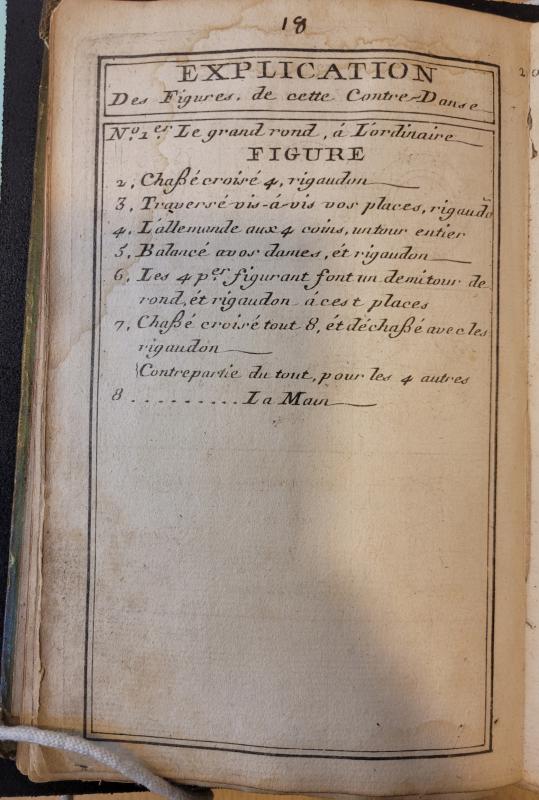 18
EXPLICATION
Des Figures, de cette Contre-Danse
N.º 1.er Le grand rond, á L'ordinaire
FIGURE
2, Chaßé croisé 4, rigaudon
3, Traversé vis-á-vis vos places, rigaudō
4, L'allemande aux 4 coins, un tour entier
5, Balancé avos dames, ét rigaudon
6, Les 4 p.er figurant font un demi tour de
rond, ét rigaudon á ces t places
7, Chaßé croisé tout 8, ét déchaßé avec les
rigaudon
Contrepartie du tout, pour les 4 autres
8 . . . . . . . . . La Main
20